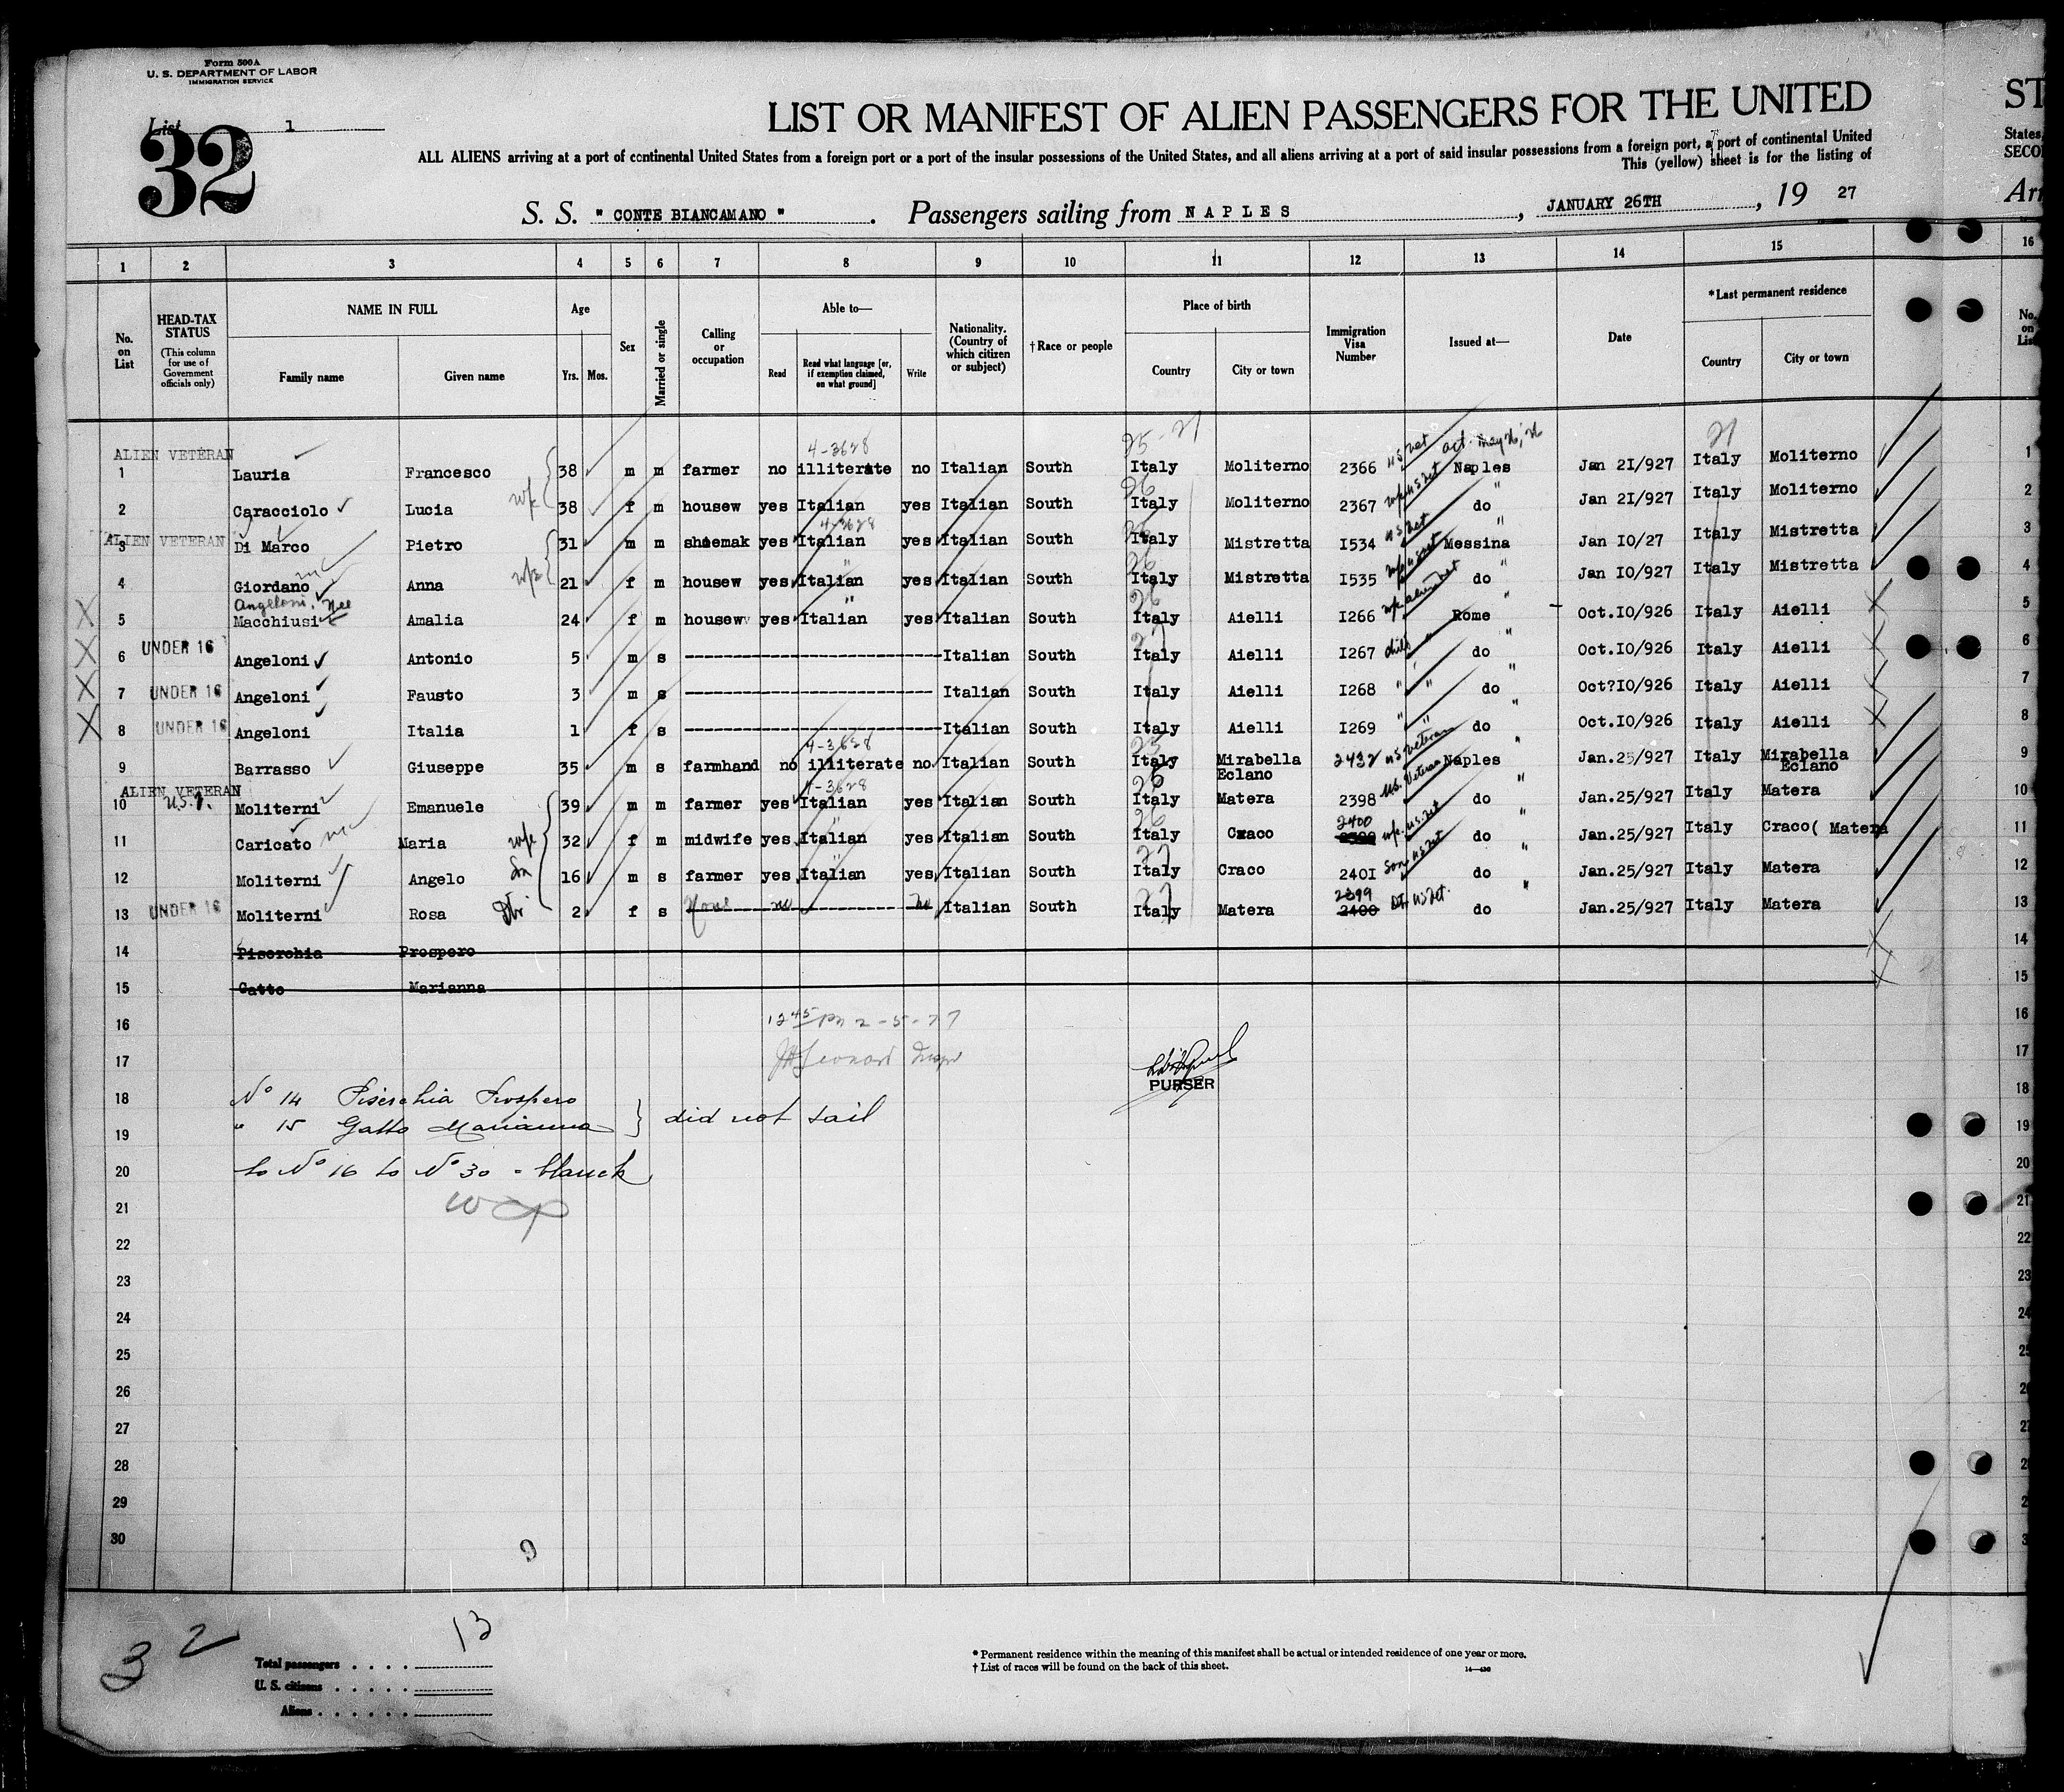 Form 500A
U. S. DEPARTMENT OF LABOR
IMMIGRATION SERVICE
List 1
32
LIST OR MANIFEST OF ALIEN PASSENGERS FOR THE UNITED
ST
ALL ALIENS arriving at a port of continental United States from a foreign port or a port of the insular possessions of the United States, and all aliens arriving at a port of said insular possessions from a foreign port, a port of continental United
States,
This (yellow) sheet is for the listing of
SECO
S. S. " CONTE BIANCAMANO " . Passengers sailing from NAPLES , JANUARY 26TH , 19 27
Arr
1 2 3 4 5 6 7 8 9 10 11 12 13 14 15 16
No. on List
HEAD-TAX STATUS
(This column for use of Government officials only)
NAME IN FULL
Family name Given name
Age
Yrs. Mos.
Sex
Married or single
Calling or occupation
Able to—
Read Read what language [or, if exemption claimed, on what ground] Write
Nationality. (Country of which citizen or subject)
†Race or people
Place of birth
Country City or town
Immigration Visa Number
Issued at—
Date
*Last permanent residence
Country City or town
No. on List
4-3628 25-21 act. may 26, 26 21
ALIEN VETERAN
1 Lauria Francesco 38 m m farmer no illiterate no Italian South Italy Moliterno 2366 US Vet Naples Jan 2I/927 Italy Moliterno 1
2 Caracciolo Lucia wife 38 f m housew yes Italian yes Italian South 26 Italy Moliterno 2367 wife US Vet do " Jan 2I/927 Italy Moliterno 2
4-3628
ALIEN VETERAN
3 Di Marco Pietro 31 m m shoemak yes Italian yes Italian South 26 Italy Mistretta I534 US Vet Messina " Jan IO/27 Italy Mistretta 3
4 Giordano Anna wife 21 f m housew yes Italian yes Italian South 26 Italy Mistretta I535 do " Jan IO/927 Italy Mistretta 4
Angeloni, nee
5 Macchiusi Amalia 24 f m housew yes Italian yes Italian South 26 Italy Aielli I266 Rome " Oct.IO/926 Italy Aielli 5
6 UNDER 16 Angeloni Antonio 5 m s Italian South Italy Aielli I267 child " do " Oct.IO/926 Italy Aielli 6
7 UNDER 16 Angeloni Fausto 3 m s Italian South Italy Aielli I268 " " do " Oct?IO/926 Italy Aielli 7
8 UNDER 16 Angeloni Italia 1 f s Italian South Italy Aielli I269 " " do " Oct.IO/926 Italy Aielli 8
4-3628
9 Barrasso Giuseppe 35 m s farmhand no illiterate no Italian South 25 Italy Mirabella Eclano 2432 US Veteran Naples " Jan.25/927 Italy Mirabella Eclano 9
4-3628
ALIEN VETERAN
10 Moliterni Emanuele 39 m m farmer yes Italian yes Italian South 26 Italy Matera 2398 U.S. Veteran do " Jan.25/927 Italy Matera 10
2400
11 Caricato Maria wife 32 f m midwife yes Italian yes Italian South 26 Italy Craco wife US Vet do " Jan.25/927 Italy Craco( Matera 11
12 Moliterni Angelo Sn 16 m s farmer yes Italian yes Italian South 27 Italy Craco 240I Son US Vet do " Jan.25/927 Italy Matera 12
2399
13 UNDER 16 Moliterni Rosa Dtr 2 f s None no no Italian South 27 Italy Matera 2400 Dt. US Vet. do " Jan.25/927 Italy Matera 13
14 Piserchia Prospero 14
15 Gatto Marianna 15
16 1245 Pm 2-5-27 16
17 Leonard Inspr 17
PURSER
18 Nº 14 Piserchia Prospero 18
19 " 15 Gatto Marianna } did not sail 19
20 to Nº 16 to Nº 30 - blanck 20
21 21
22 22
23 23
24 24
25 25
26 26
27 27
28 28
29 29
30
9
32
13
Total passengers . . . .
U. S. citizens . . . . .
Aliens . . . . . .
* Permanent residence within the meaning of this manifest shall be actual or intended residence of one year or more.
† List of races will be found on the back of this sheet.
14—430